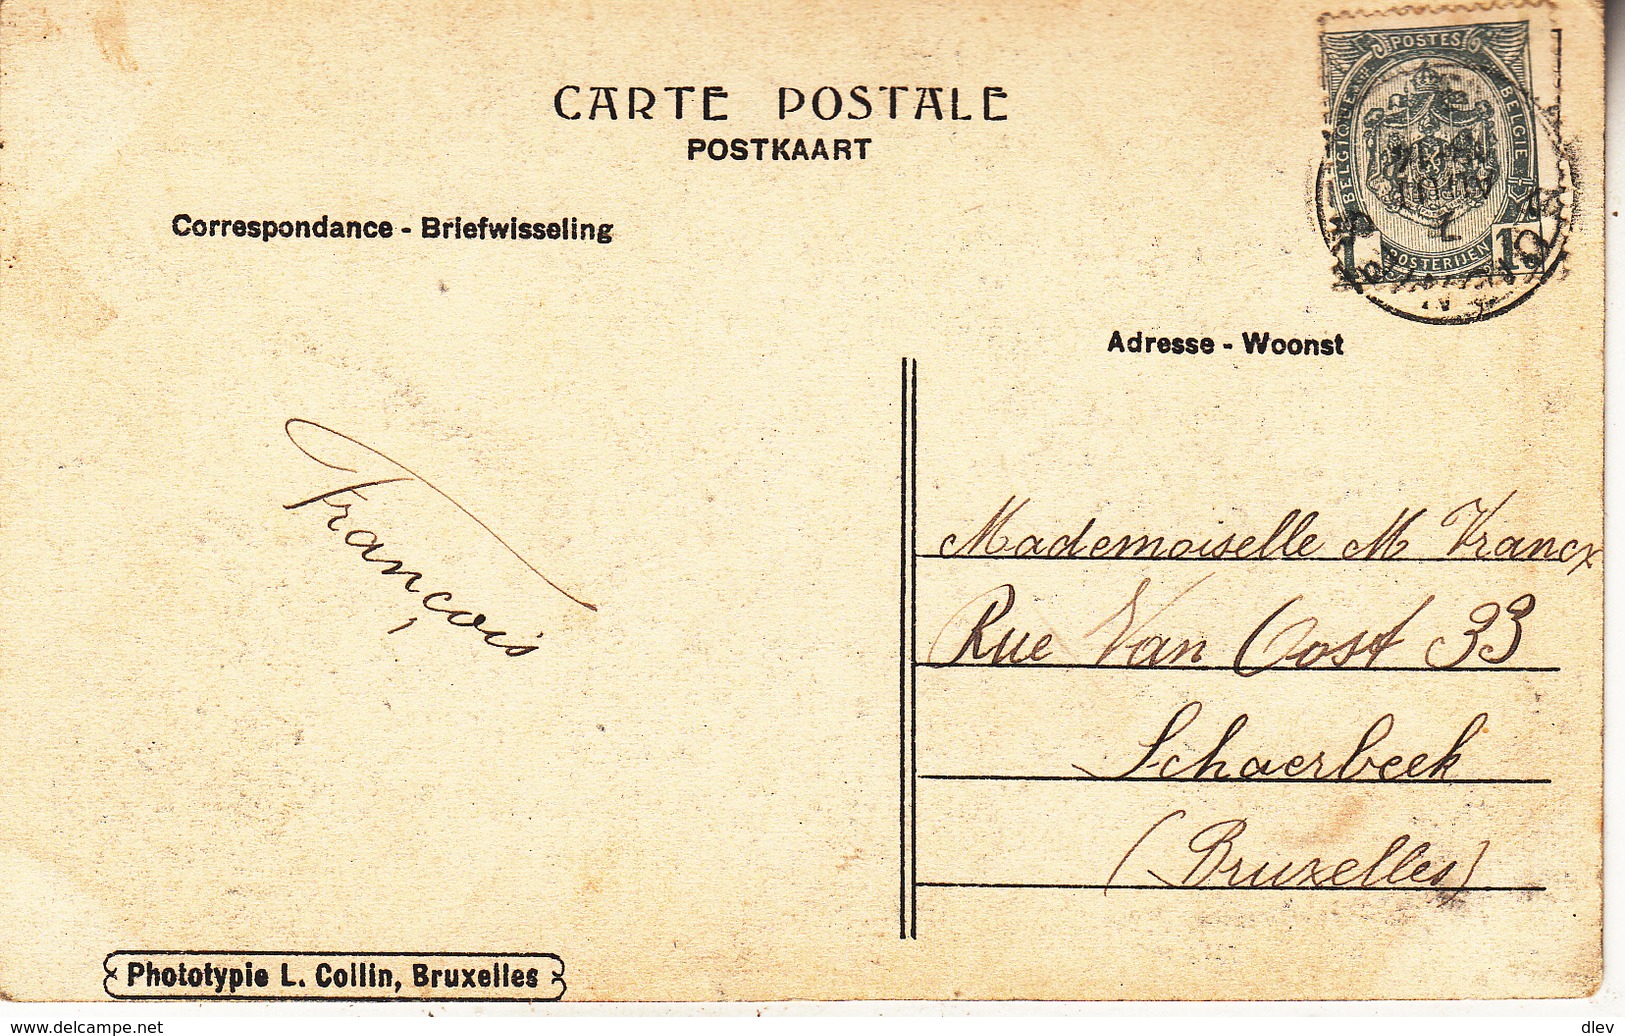 CARTE POSTALE
POSTKAART
Correspondance - Briefwisseling
POSTES
BELGIQUE
BELGIE
1
POSTERIJEN
1
AOUT
Adresse - Woonst
François
Mademoiselle M Vrancx
Rue Van Oost 33
Schaerbeek
(Bruxelles)
Phototypie L. Collin, Bruxelles
www.delcampe.net
dlev